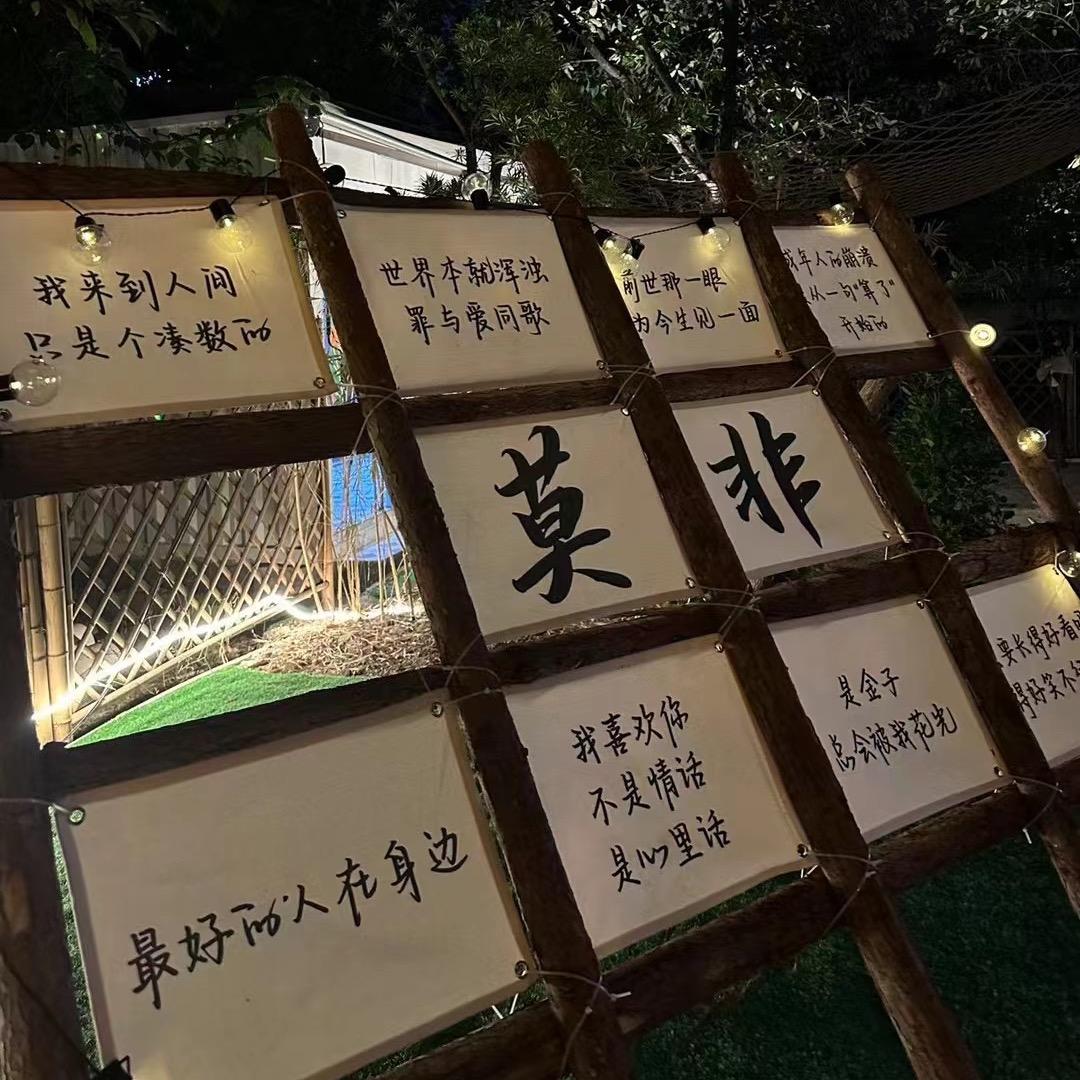 我来到人间
只是个凑数的
世界本就浑浊
罪与爱同歌
前世那一眼
为今生见一面
成年人的崩溃
从一句"算了"
开始的
莫
非
最好的人在身边
我喜欢你
不是情话
是心里话
是金子
总会被我花光
要长得好看
得好笑不